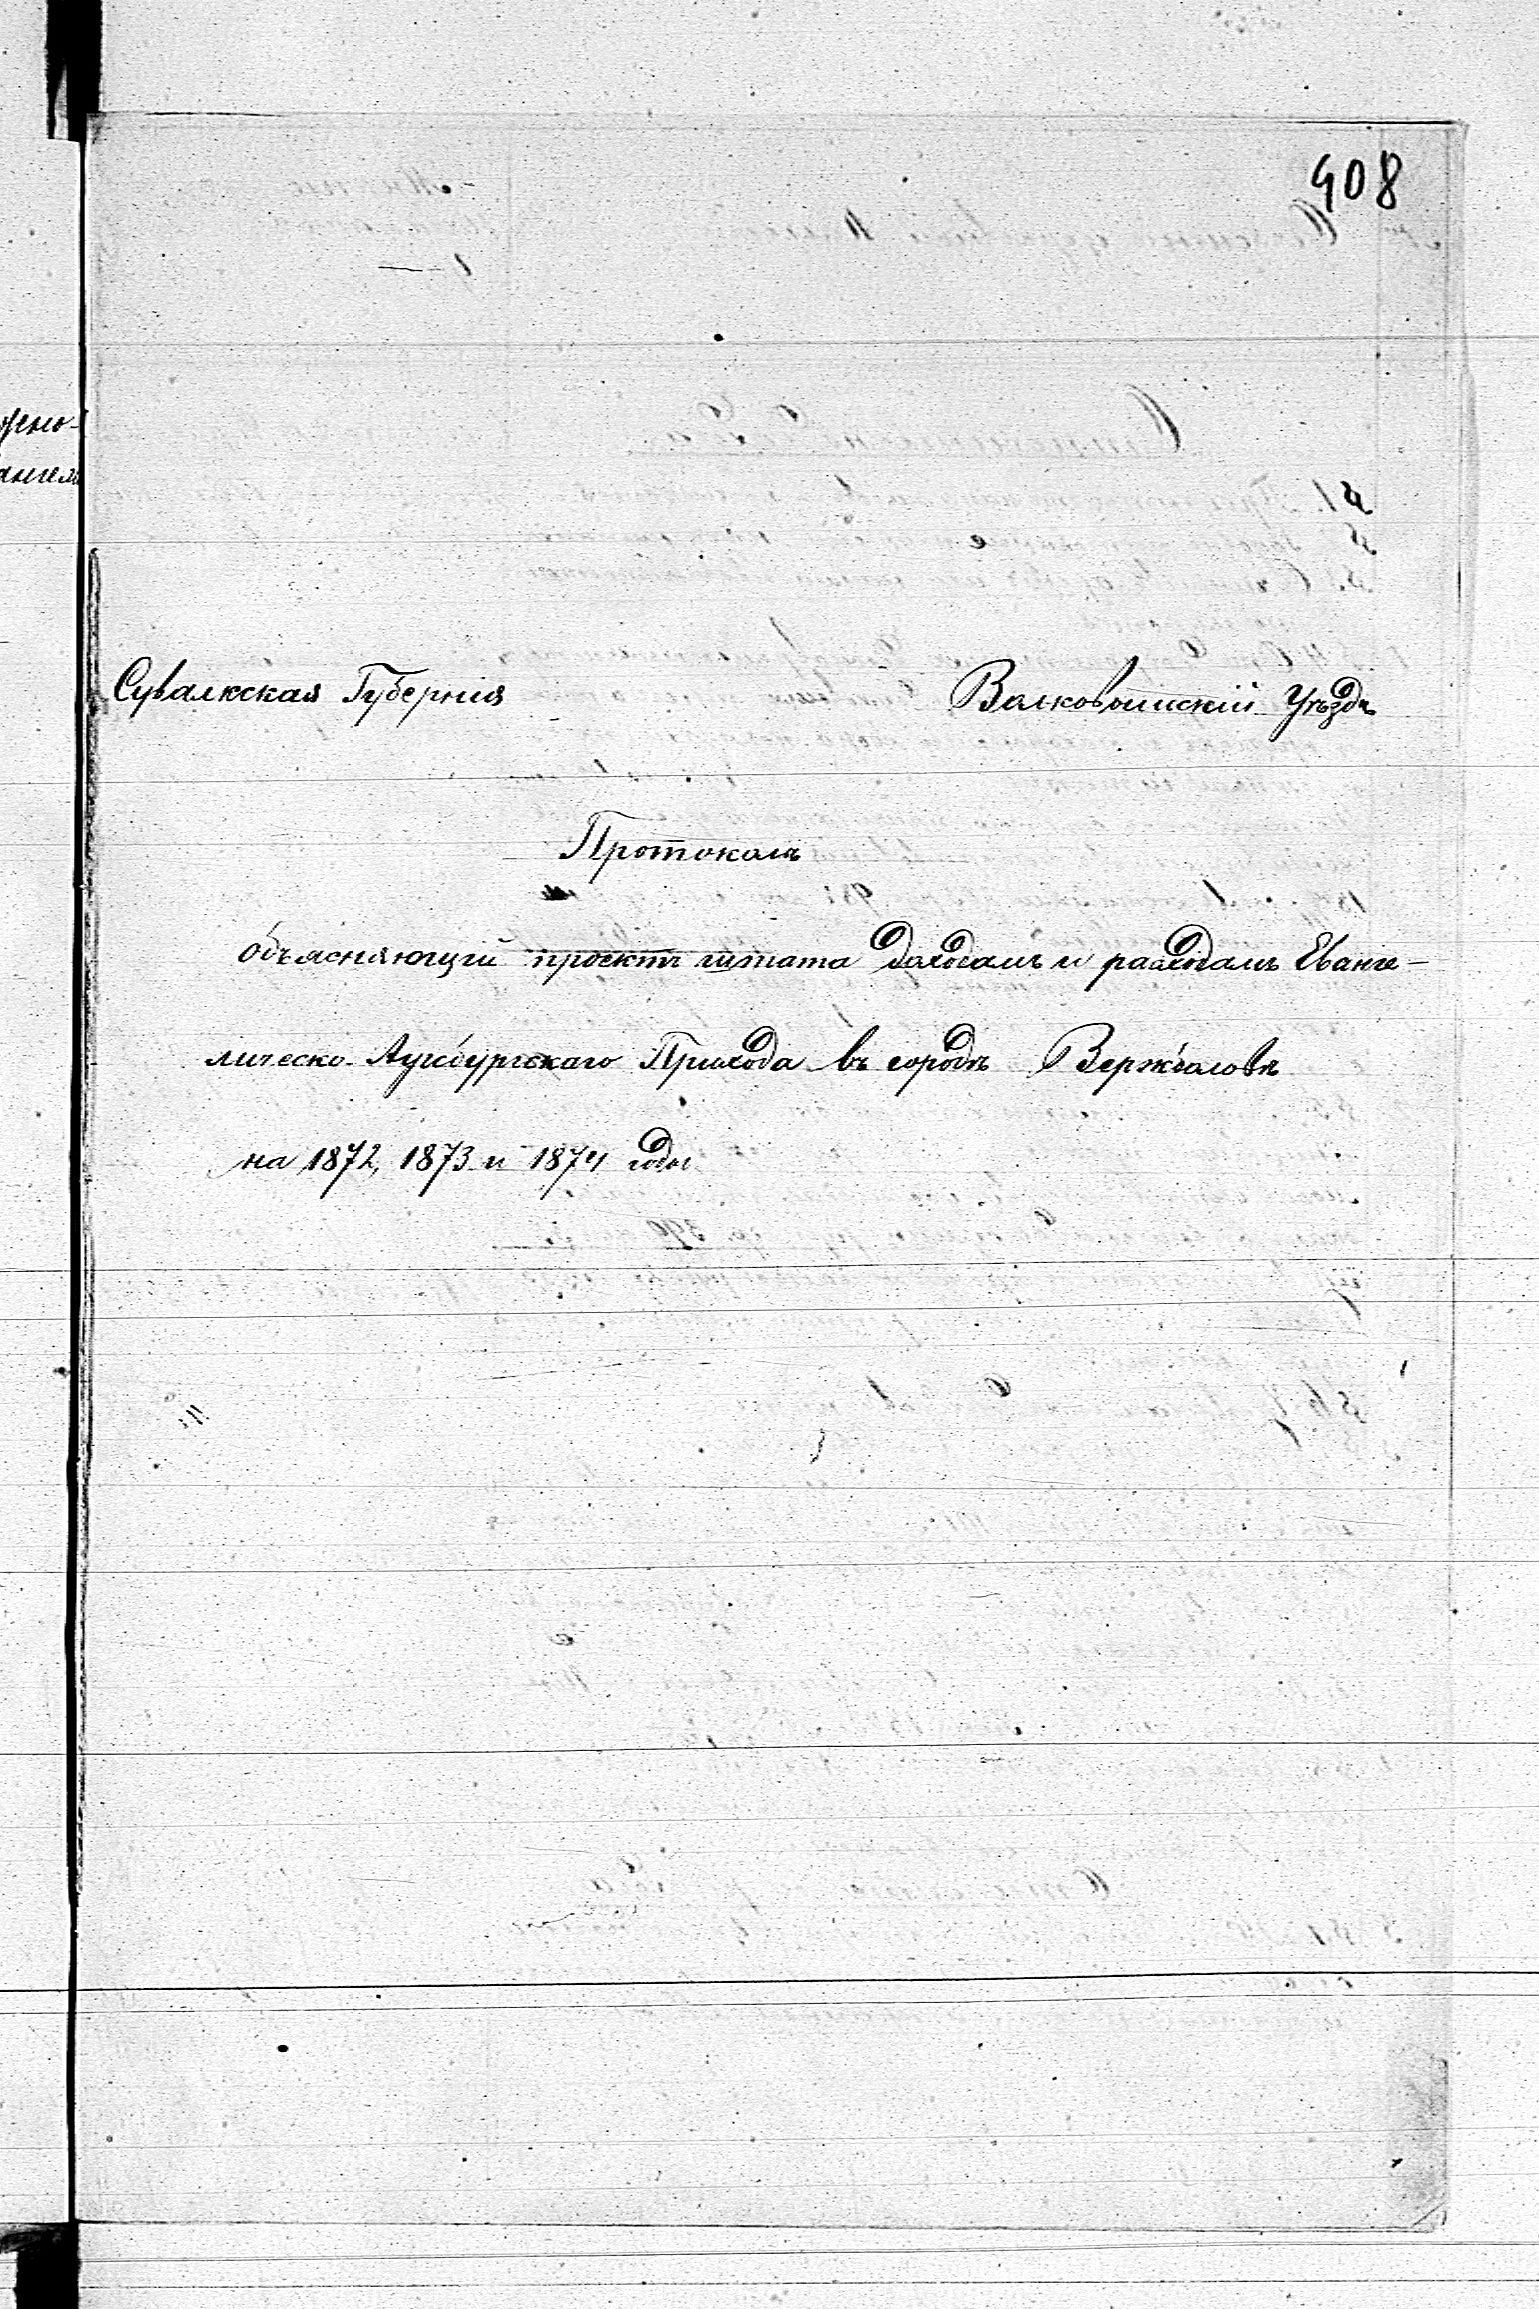 408
Сувалкская Губернія Волковышскій Уѣздъ
Протоколъ
объясняющій проектъ штата доходамъ и расходамъ Еванге-
лическо-Аугсбургскаго Прихода въ городѣ Вержболовѣ
на 1872, 1873 и 1874 годы